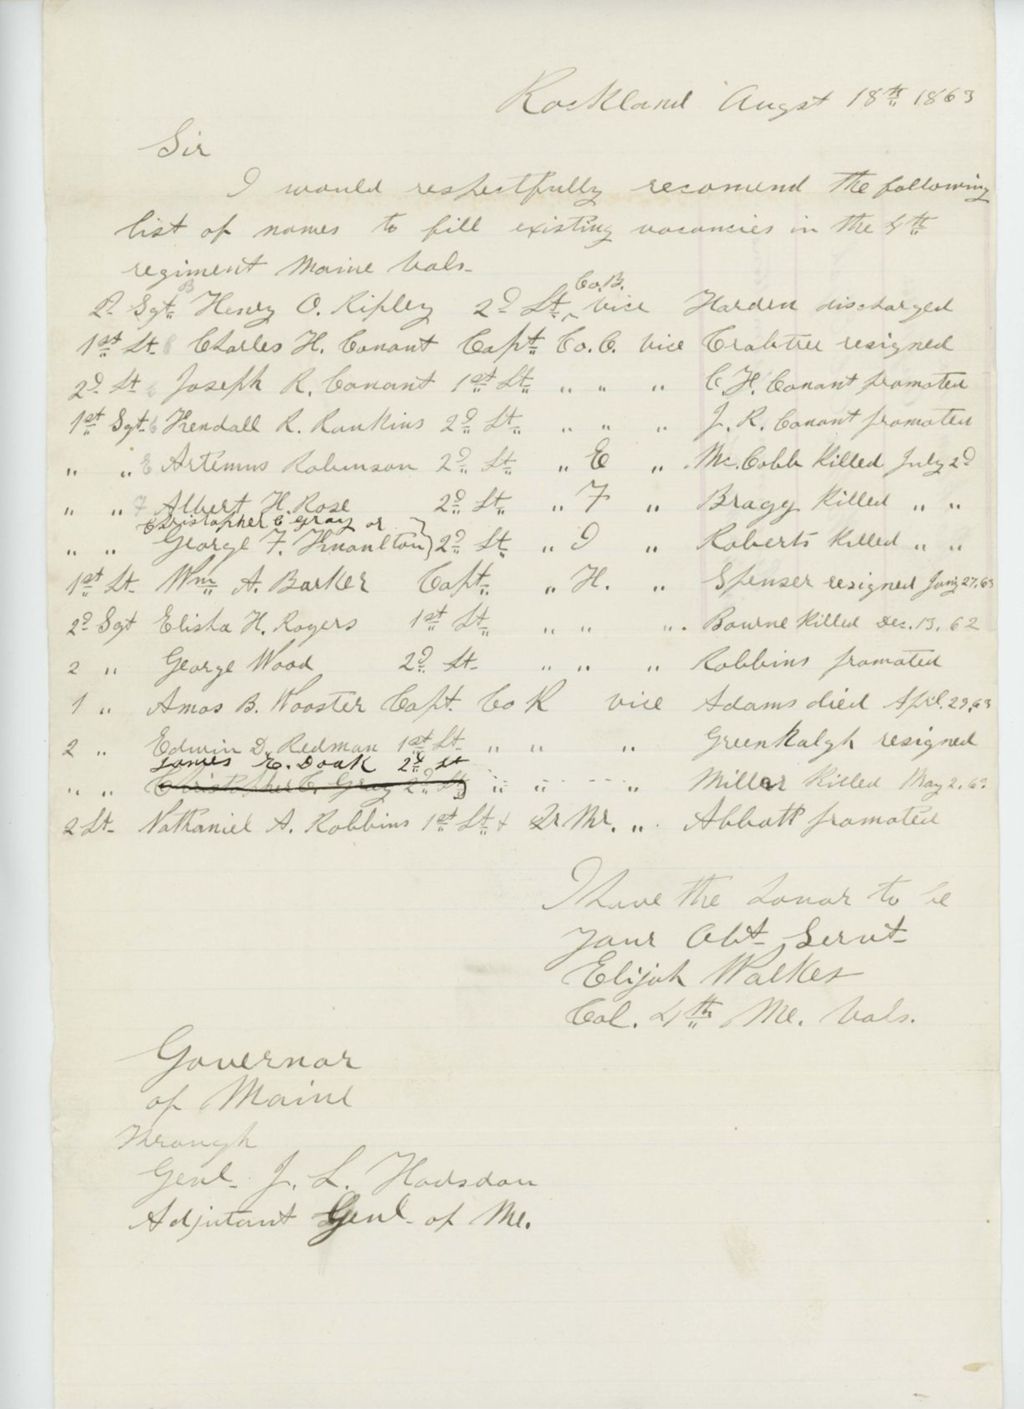 Rockland Augst 18th 1863
Sir
I would respectfully recomend the following
list of names to fill existing vacancies in the 4th
regiment Maine Vols-
2d Sgt B Henry O. Ripley 2d Lt Co. B. vice Harden discharged
1st Lt. Charles H. Conant Capt Co. C. vice Crabtree resigned
2d Lt Joseph R. Conant 1st Lt " " " C. H. Conant promoted
1st Sgt Kendall K. Rankins 2d Lt " " " J. R. Conant promoted
" " E Artemus Robinson 2d Lt " E " Mc. Cobb Killed July 2d
" " F Albert H. Rose 2d Lt " F " Bragg Killed " "
Christopher C Gray or
" " George F. Knowlton } 2d Lt " I " Roberts Killed " "
1st Lt- Wm A. Barker Capt " H. " Spenser resigned 27, 63
2d Sgt Elisha H. Rogers 1st Lt " " " Bourne Killed Dec. 13, 62
2 " George Wood 2d Lt- " " " Robbins promoted
1 " Amos B. Wooster Capt. Co K vice Adams died Apl. 29, 63
2 " Edwin D. Redman 1st Lt- " " " Greenhalgh resigned
James E. Doak 2d Lt
" " Christopher C. Gray 2d Lt " " " Miller Killed May 2, 63
2 Lt- Nathaniel A. Robbins 1st Lt & Qr Mr. " Abbott promoted
I have the honor to be
your Obt- Servt-
Elijah Walker
Col. 4th Me. Vols.
Governor
of Maine
Through
Genl- J. L. Hodsdon
Adjutant Genl- of Me.